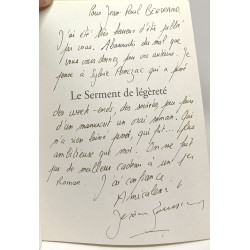 Pour Jean-Paul
J'ai été très heureux d'être publié
par vous. du mal que
vous vous donnez pour vos auteurs. Je
pense à Sylvie qui a passé
Le Serment de légèreté
des week-ends, des soirées peu
d'un manuscrit un vrai roman. Qui
m'a rien laissé passé, qui fut... plus
ambitieuse que moi. On ne fait
pas de meilleur cadeau à un
Roman. J'ai confiance.
Amicalement